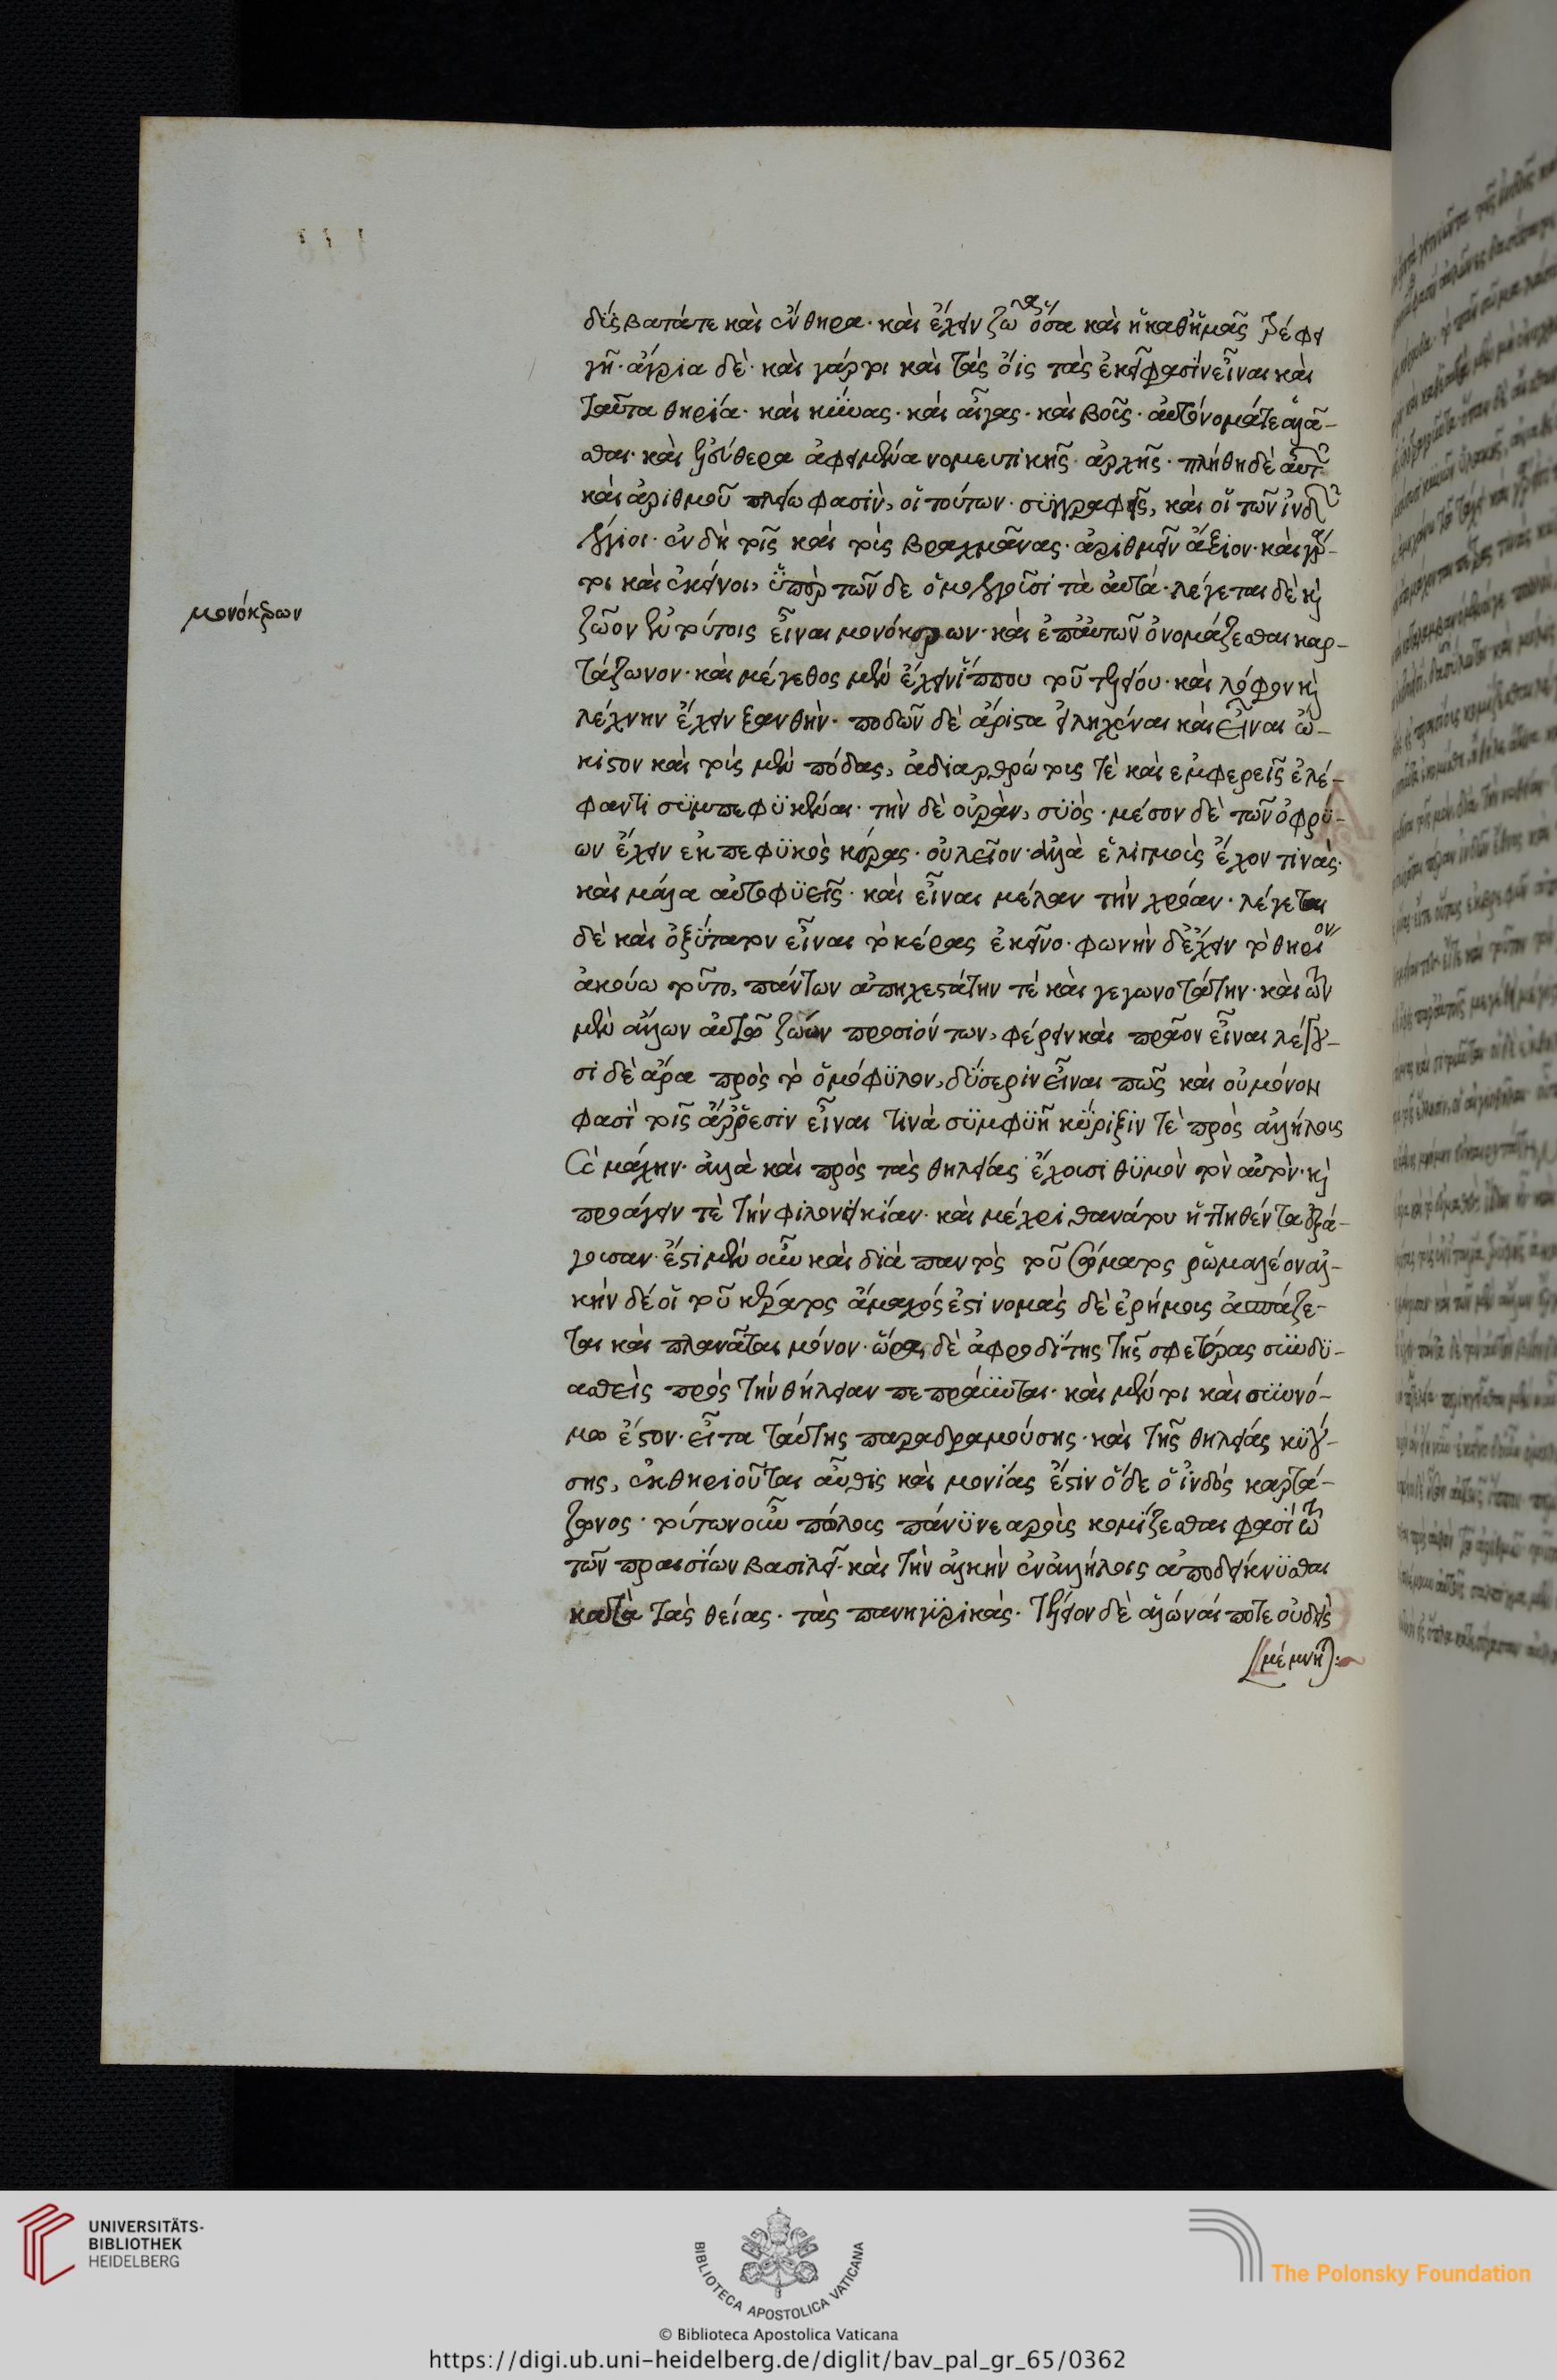 δύσβατά τε καὶ ἔνθηρα· καὶ ἔχειν ζῶα ὅσα καὶ ἡ καθ' ἡμᾶς τρέφει
γῆ· ἄγρια δὲ· καὶ γάρ τοι καὶ τὰς ὄις τὰς ἐκεῖ φασὶν εἶναι καὶ
ταῦτα θηρία· καὶ κύνας· καὶ αἶγας· καὶ βοῦς· αὐτόνομά τε ἀλᾶ-
σθαι· καὶ ἐλεύθερα ἀφειμένα νομευτικῆς ἀρχῆς· πλήθη δὲ αὐτῶν
καὶ ἀριθμοῦ πλείω φασὶν, οἵ τούτων συγγραφεῖς, καὶ οἵ τῶν ἰνδῶν
λόγιοι· ἐν δὴ τοῖς καὶ τοὺς βραχμᾶνας· ἀριθμεῖν ἄξιον· καὶ γάρ
τοι καὶ ἐκεῖνοι, ὑπὲρ τῶν δε ὁμολογοῦσι τὰ αὐτά· λέγεται δὲ καὶ
μονόκερων
ζῶον ἐν τούτοις εἶναι μονόκερων· καὶ ὑπ' αὐτῶν ὀνομάζεσθαι καρ-
τάζωνον· καὶ μέγεθος μὲν ἔχειν ἵππου τοῦ τελείου· καὶ λόφον καὶ
λέχνην ἔχειν ξανθὴν· ποδῶν δὲ ἄριστα εἰληχέναι καὶ εἶναι ὤ-
κιστον καὶ τοὺς μὲν πόδας, ἀδιαρθρώτους τὲ καὶ εμφερεῖς ἐλέ-
φαντι συμπεφυκέναι· τὴν δὲ οὐρὰν, συὸς· μέσον δὲ τῶν ὀφρύ-
ων ἔχειν εκπεφυκὸς κέρας· οὐ λεῖον ἀλλὰ ἑλιγμοὺς ἔχον τινὰς·
καὶ μάλα αὐτοφυεῖς· καὶ εἶναι μέλαν τὴν χρόαν· λέγεται
δὲ καὶ ὀξύτατον εἶναι τὸ κέρας ἐκεῖνο· φωνὴν δὲ ἔχειν τὸ θηρίον
ἀκούω τοῦτο, πάντων ἀπηχεστάτην τὲ καὶ γεγωνοτάτην· καὶ τῶν
μὲν ἄλλων αὐτῷ ζώων προσιόντων, φέρειν καὶ πρᾶον εἶναι λέγου-
σι δὲ ἄρα πρὸς τὸ ὁμόφυλον, δύσεριν εἶναι πῶς καὶ οὐ μόνον
φασὶ τοῖς ἄρρεσιν εἶναι τινὰ συμφυῆ κύριξιν τὲ πρὸς ἀλλήλους
καὶ μάχην· ἀλλὰ καὶ πρὸς τὰς θηλείας ἔχουσι θυμὸν τὸν αὐτὸν· καὶ
προάγειν τὲ τὴν φιλονεικίαν· καὶ μέχρι θανάτου ἡττηθέντα ἐξά-
γουσαν· ἔστι μὲν οὖν καὶ διὰ παντὸς τοῦ σώματος ῥωμαλέον ἀλ-
κὴν δέ οἵ τοῦ κέρατος ἄμαχός ἐστι νομὰς δὲ ἐρήμους ἀσπάζε-
ται καὶ πλανᾶται μόνον· ὥρα δὲ ἀφροδίτης τῆς σφετέρας συνδυ-
ασθεὶς πρὸς τὴν θήλειαν πεπράϋνται· καὶ μέν τοι καὶ συννό-
μω ἔστον· εἶτα ταύτης παραδραμούσης· καὶ τῆς θηλείας κυού-
σης, ἐκθηριοῦται αὖθις καὶ μονίας ἔστιν ὅδε ὁ ἰνδὸς καρτά-
ζωνος· τούτων οὖν πώλους πάνυ νεαροὺς κομίζεσθαι φασὶ τῷ
τῶν πραισίων βασιλεῖ· καὶ τὴν ἀλκὴν ἐν ἀλλήλοις ἀποδείκνυσθαι
κατὰ τὰς θείας· τὰς πανηγυρικὰς· τέλειον δὲ ἁλῶναί ποτε οὐδεὶς
μέμνηται:
UNIVERSITÄTS-
BIBLIOTHEK
HEIDELBERG
BIBLIOTECA APOSTOLICA VATICANA
The Polonsky Foundation
© Biblioteca Apostolica Vaticana
https://digi.ub.uni-heidelberg.de/diglit/bav_pal_gr_65/0362